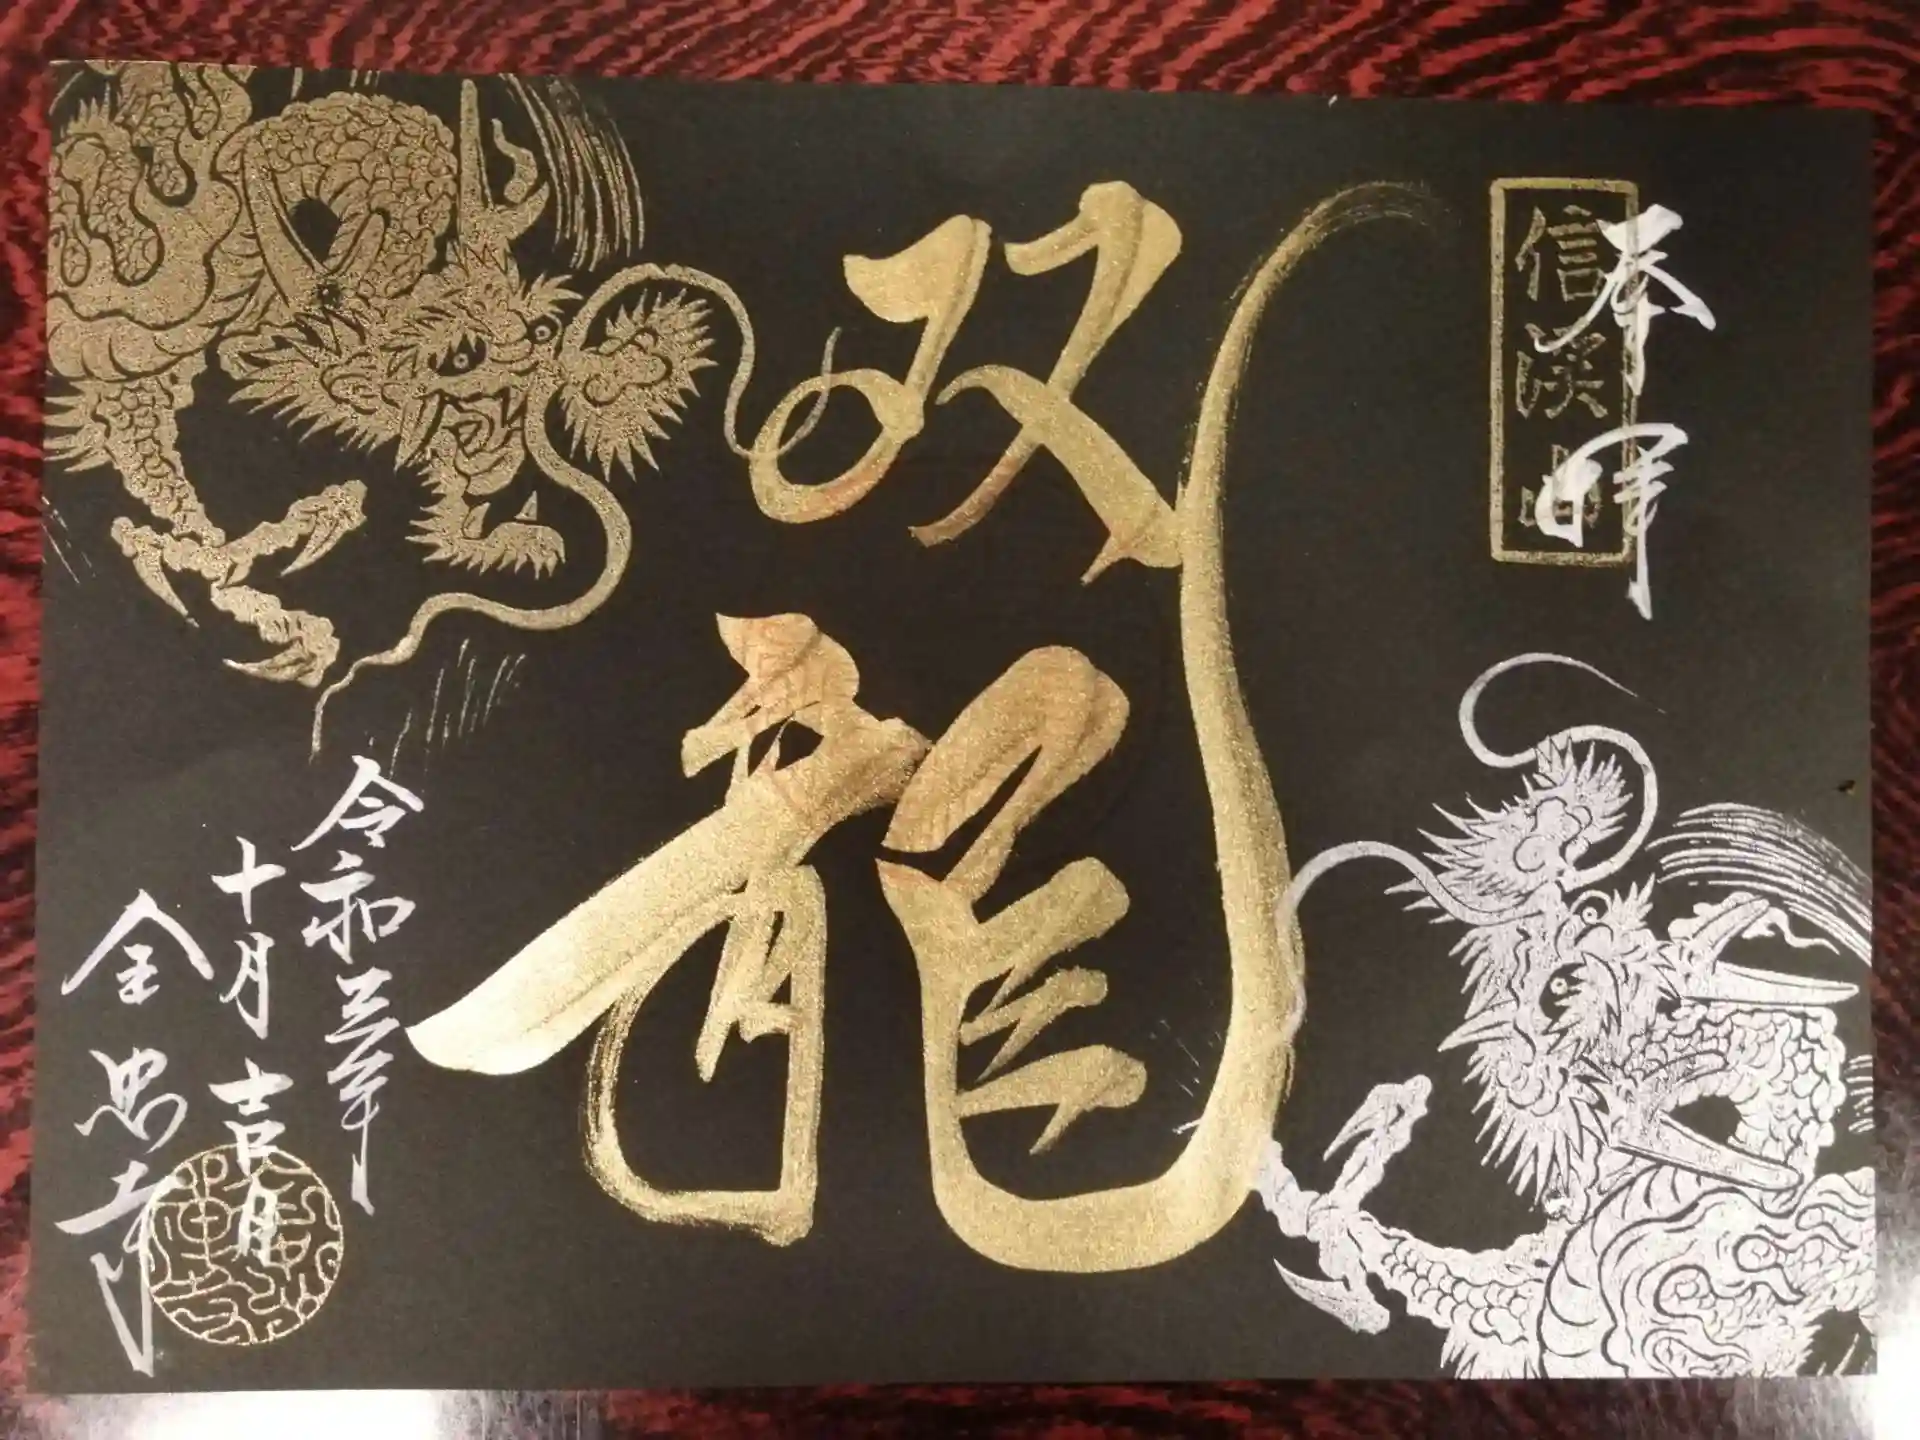 奉拝
信濃山
双龍
令和三年
十月吉日
全忠寺